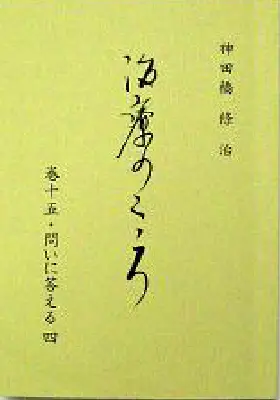 神田橋 條治
治療のこころ
巻十五・問いに答える 四